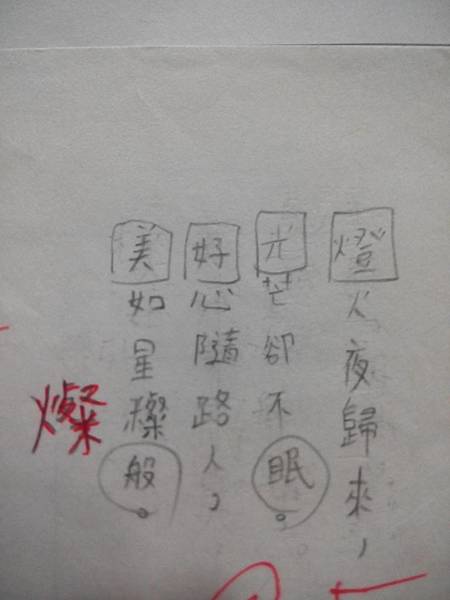 燈火夜歸來，
光芒卻不眠。
好心隨路人，
美如星璨般。
燦